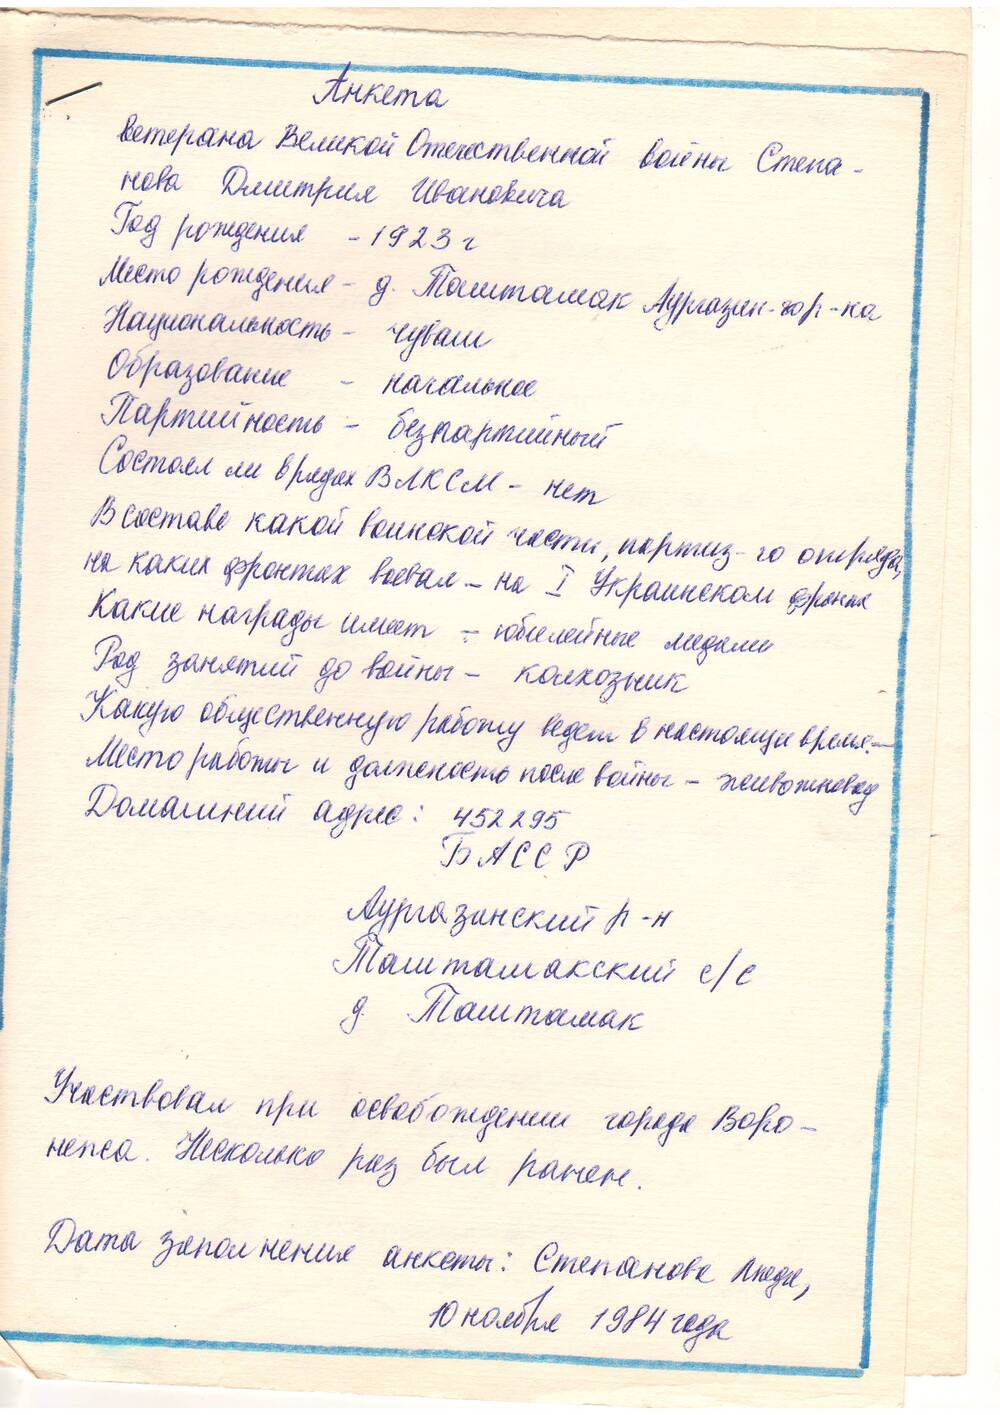 Анкета
ветерана Великой Отечественной войны Степа-
нова Дмитрия Ивановича
Год рождения - 1923 г
Место рождения - д. Таштамак Аургазин-го р-на
Национальность - чуваш
Образование - начальное
Партийность - безпартийный
Состоял ли в рядах ВЛКСМ - нет
В составе какой воинской части, партиз-го отряда,
на каких фронтах воевал - на I Украинском фронте
Какие награды имеет - юбилейные медали
Род занятий до войны - колхозник
Какую общественную работу ведет в настоящее время -
Место работы и должность после войны - животновод
Домашний адрес: 452295
БАССР
Аургазинский р-н
Таштамакский с/с
д. Таштамак
Участвовал при освобождении города Воро-
нежа. Несколько раз был ранен.
Дата заполнения анкеты: Степанова Люда,
10 ноября 1984 года